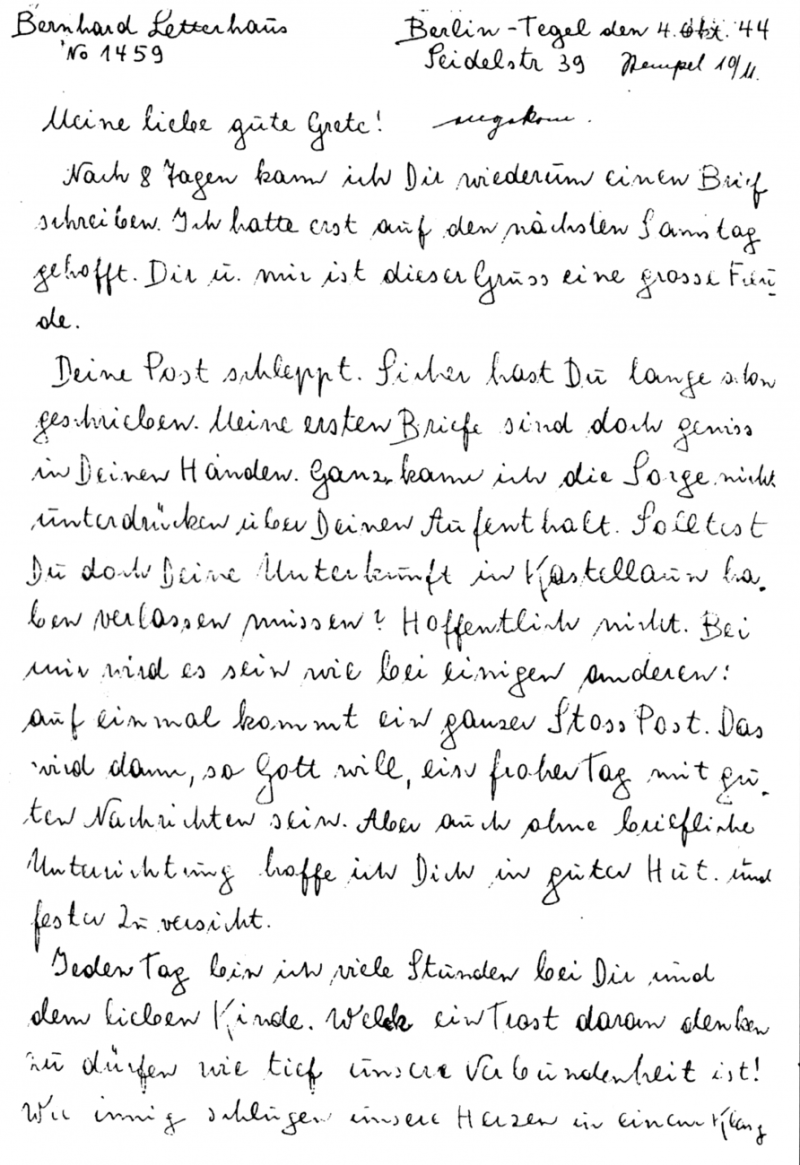 Bernhard Letterhaus Berlin-Tegel den 4. Okt. 44
No 1459 Seidelstr 39 Stempel 10/11.
Meine liebe gute Grete!
Nach 8 Tagen kann ich Dir wiederum einen Brief
schreiben. Ich hatte erst auf den nächsten Samstag
gehofft. Dir u. mir ist dieser Gruss eine grosse Freu
de.
Deine Post schleppt. Sicher hast Du lange schon
geschrieben. Meine ersten Briefe sind doch gewiss
in Deinen Händen. Ganz kann ich die Sorge nicht
unterdrücken über Deinen Aufenthalt. Solltest
Du doch Deine Unterkunft in Kastellaun ha-
ben verlassen müssen? Hoffentlich nicht. Bei
mir wird es sein wie bei einigen anderen:
auf einmal kommt ein ganzer Stoss Post. Das
wird dann, so Gott will, ein froher Tag mit gu-
ten Nachrichten sein. Aber auch ohne briefliche
Unterichtung hoffe ich Dich in guter Hut. und
fester Zuversicht.
Jeden Tag bin ich viele Stunden bei Dir und
dem lieben Kinde. Welch ein Trost daran denken
zu dürfen wie tief unsere Verbundenheit ist!
Wie innig schlugen unsere Herzen in einem Klang